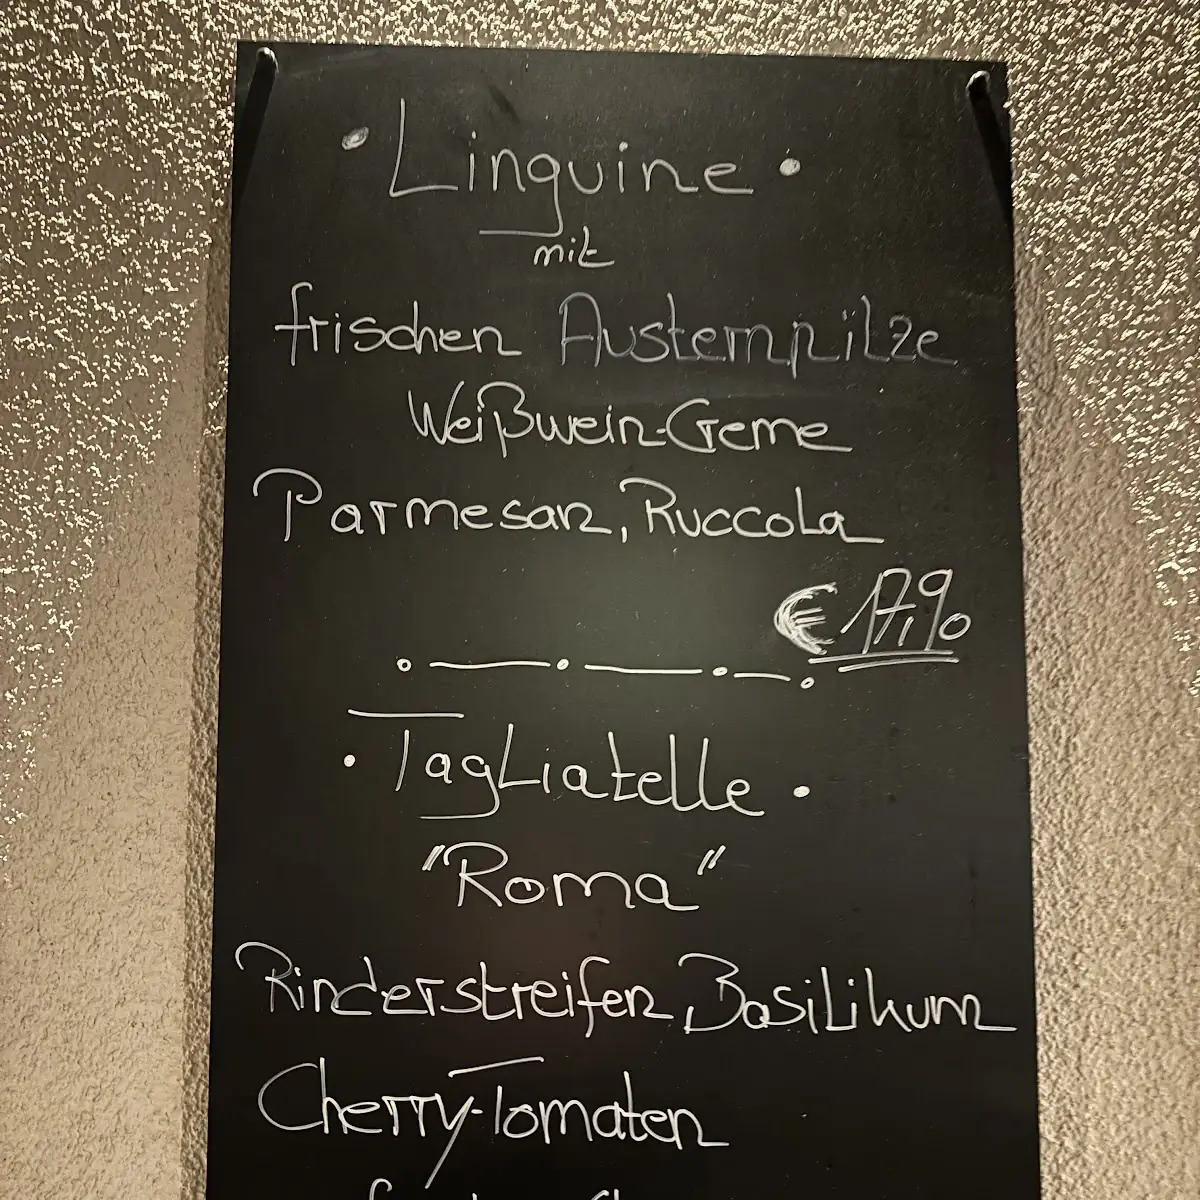 • Linguine •
mit
frischen Austernpilze
Weißwein-Creme
Parmesan, Ruccola
€ 17,90
• Tagliatelle •
"Roma"
Rinderstreifen, Basilikum
Cherry-Tomaten